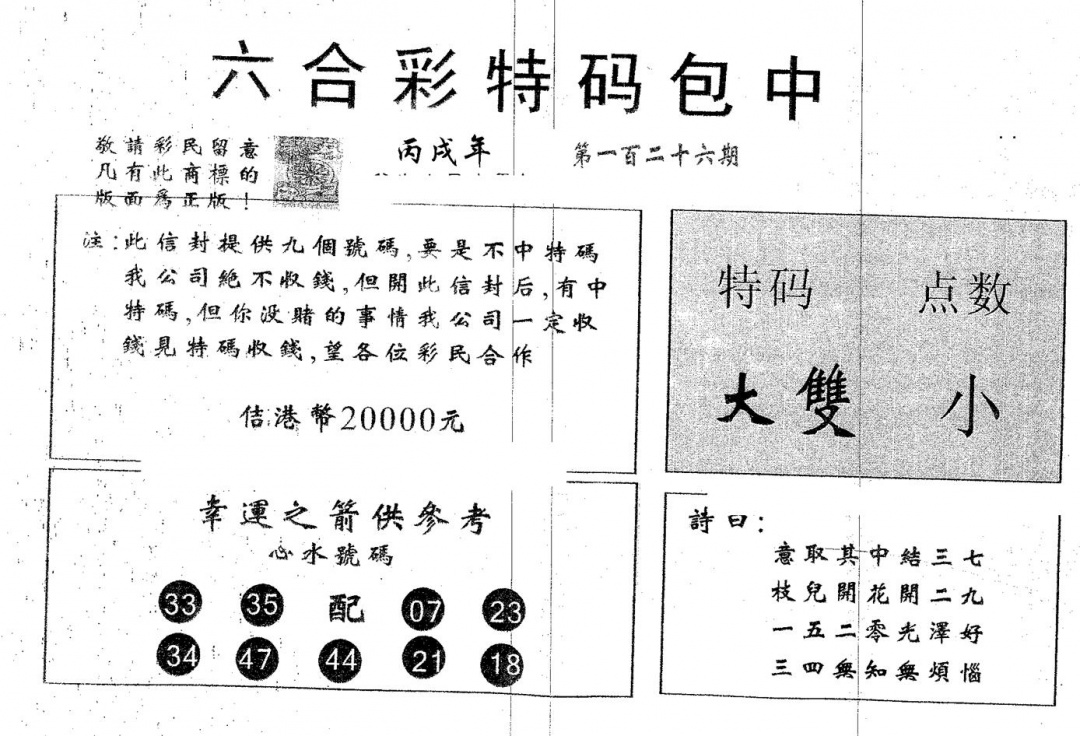 六合彩特码包中
敬請彩民留意
凡有此商標的
版面爲正版!
丙戌年
第一百二十六期
注:此信封提供九個號碼,要是不中特碼
我公司絶不收錢,但開此信封后,有中
特碼,但你没賭的事情我公司一定收
錢見特碼收錢,望各位彩民合作
佶港幣20000元
特码 点数
大雙 小
幸運之箭供參考
心水號碼
33 35 配 07 23
34 47 44 21 18
詩曰:
意取其中結三七
枝兒開花開二九
一五二零光澤好
三四無知無煩惱